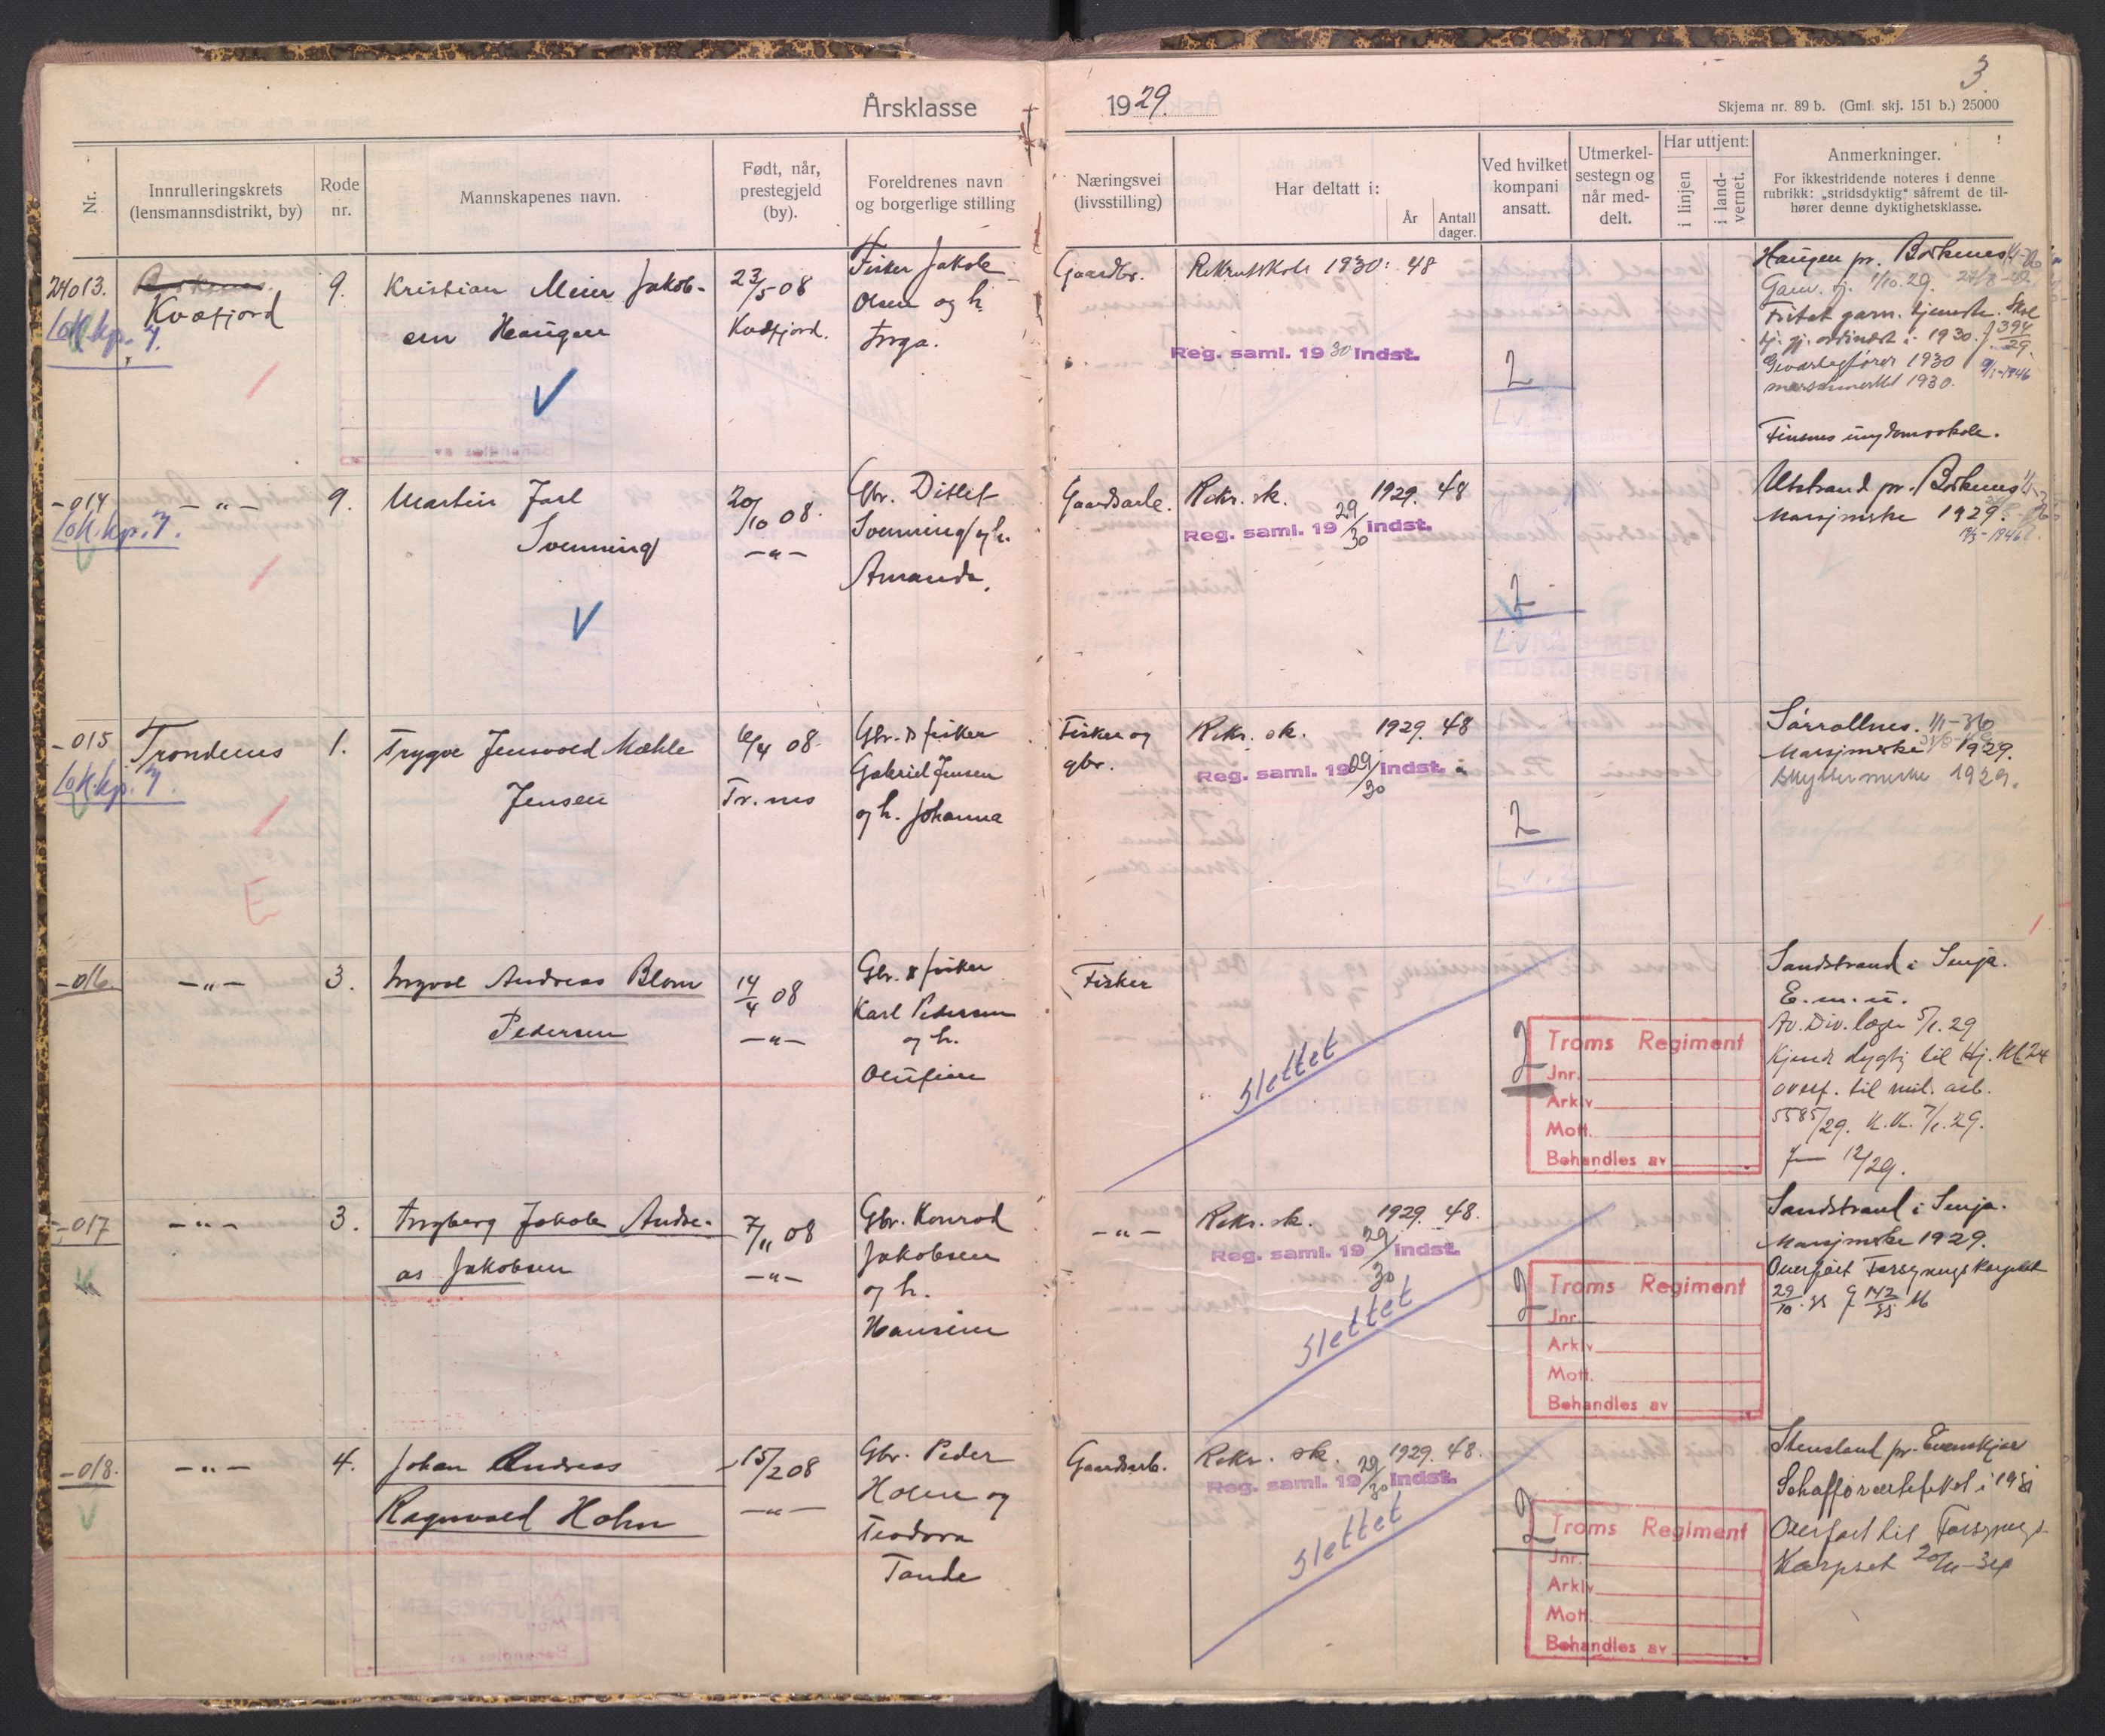 3
Årsklasse 1929.
Skjema nr. 89 b. (Gml. skj. 151 b.) 25000
Nr.
Innrulleringskrets
(lensmannsdistrikt, by)
Rode
nr.
Mannskapenes navn.
Født, når,
prestegjeld
(by).
Foreldrenes navn
og borgerlige stilling
Næringsvei
(livsstilling)
Har deltatt i:
År
Antall
dager.
Ved hvilket
kompani
ansatt.
Utmerkel-
sestegn og
når med-
delt.
Har uttjent:
i linjen
i land-
vernet.
Anmerkninger.
For ikkestridende noteres i denne
rubrikk: „stridsdyktig“ såfremt de til-
hører denne dyktighetsklasse.
24013.
Kvæfjord
Lok.kp. 7.
9.
Kristian Meier Jakob-
sen Haugen
23/5 08
Kvæfjord.
Fisker Jakob
Olsen og h.
Inga.
Gaardbr.
Rekrutskole 1930: 48
Reg. saml. 1930 Indst.
2
Haugen pr. Borkenes
Garn. tj. 1/10. 29.
Fritat garn. tjeneste.
1930. 394/29.
Geværlagfører 1930
1930.
Finsnes ungdomsskole.
-014
Lok.kp. 7.
-"-
9.
Martin Jarl
Svenning
20/10 08.
-"-
Gbr. Ditlef
Svenning og h.
Amanda.
Gaardsarb.
Rekr. sk. 1929. 48
Reg. saml. 19 29/30 indst.
2
Utstrand pr. Borkenes
Marsjmerke 1929.
-015
Lok.kp. 7.
Trondenes
1.
Trygve Jensvold Mæhle
Jensen
6/4 08.
Tr.nes
Gbr. & fisker
Gabriel Jensen
og h. Johanna
Fisker og
gbr.
Rekr. sk. 1929. 48
Reg. saml. 19 29/30 indst.
2
Sørrollnes. 1/1-36
Marsjmerke 1929.
Skyttermerke 1929.
E
-016.
-"-
3.
Ingval Andreas Blom
Pedersen
14/4 08
-"-
Gbr. & fisker
Karl Pedersen
og h.
Olufine
Fisker
Slettet
2
Troms Regiment
Jnr.
Arkiv
Mott.
Behandles av
Sandstrand i Senja.
E.m.u.
Av. Div. læge 5/1. 29
Kjendt dygtig til Hj. Kl 24
overf. til mil. arb.
5585/29. K.K. 7/1. 29.
12/29.
-017
-"-
3.
Ingberg Jakob Andre-
as Jakobsen
7/11 08
-"-
Gbr. Konrad
Jakobsen
og h.
Hansine
-"-
Rekr. sk. 1929. 48.
Reg. saml. 19 29/30 indst.
Slettet
2
Troms Regiment
Jnr.
Arkiv
Mott.
Behandles av
Sandstrand i Senja.
Marsjmerke 1929.
Overført Forsyningskorpset
29/10. 35 142/35
-018.
-"-
4.
Johan Andreas
Ragnvald Holm
15/2 08
-"-
Gbr. Peder
Holm og
Teodora
Tande
Gaardsarb.
Rekr. sk. 1929. 48.
Reg. saml. 19 29/30 indst.
Slettet
2
Troms Regiment
Jnr.
Arkiv
Mott.
Behandles av
Stensland pr. Evenskjær
Overført til Forsynings-
Korpset